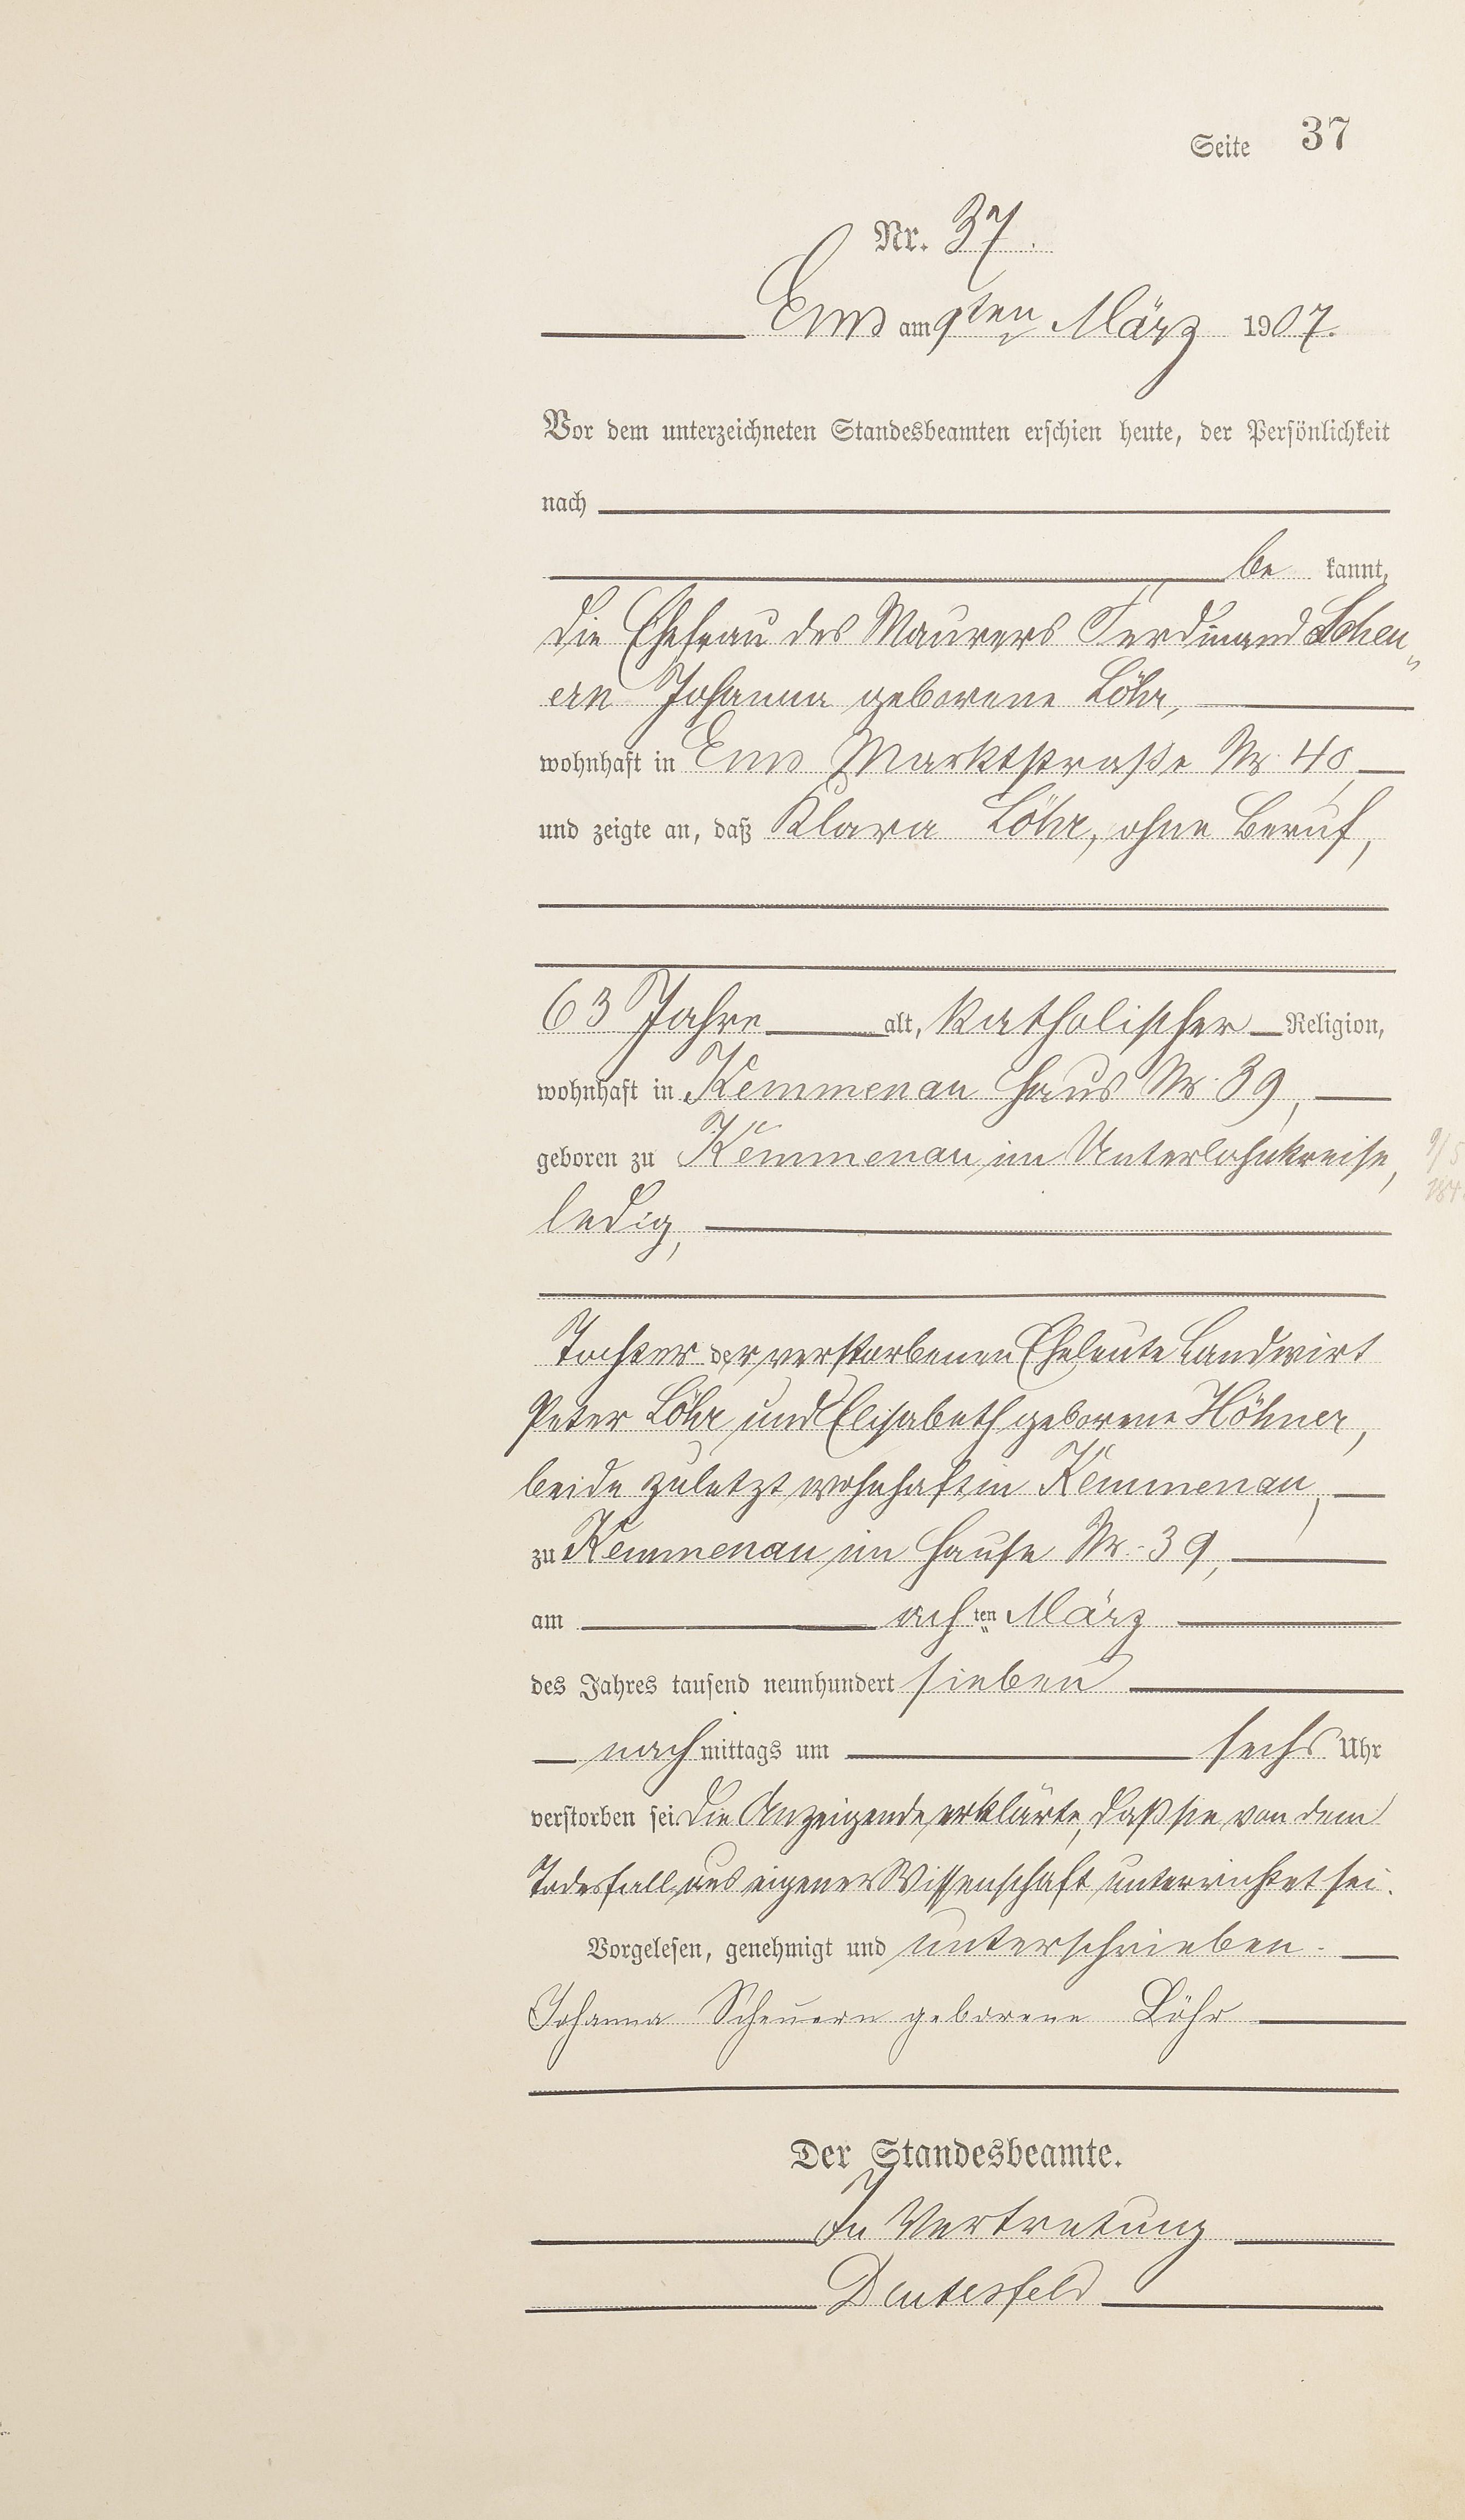 Seite 37
Nr. 37.
Ems am 9ten März 1907.
Vor dem unterzeichneten Standesbeamten erschien heute, der Persönlichkeit
nach
be kannt,
die Ehefrau des Maurers Ferdinand Scheu„
ern Johanna geborene Löhr,
wohnhaft in Ems Marktstraße Nr. 40,
und zeigte an, daß Klara Löhr, ohne Beruf,
63 Jahre alt, katholischer Religion,
wohnhaft in Kemmenau Haus Nr. 39,
geboren zu Kemmenau im Unterlahnkreise,
9/5
184
ledig,
Tochter der verstorbenen Eheleute Landwirt
Peter Löhr und Elisabeth geborene Höhner,
beide zuletzt wohnhaft in Kemmenau,
zu Kemmenau im Hause Nr. 39,
am achten März
des Jahres tausend neunhundert sieben
nachmittags um sechs Uhr
verstorben sei. Die Anzeigende erklärte, daß sie von dem
Todesfall aus eigener Wissenschaft unterrichtet sei.
Vorgelesen, genehmigt und unterschrieben.
Johanna Scheuern geborene Löhr
Der Standesbeamte.
In Vertretung